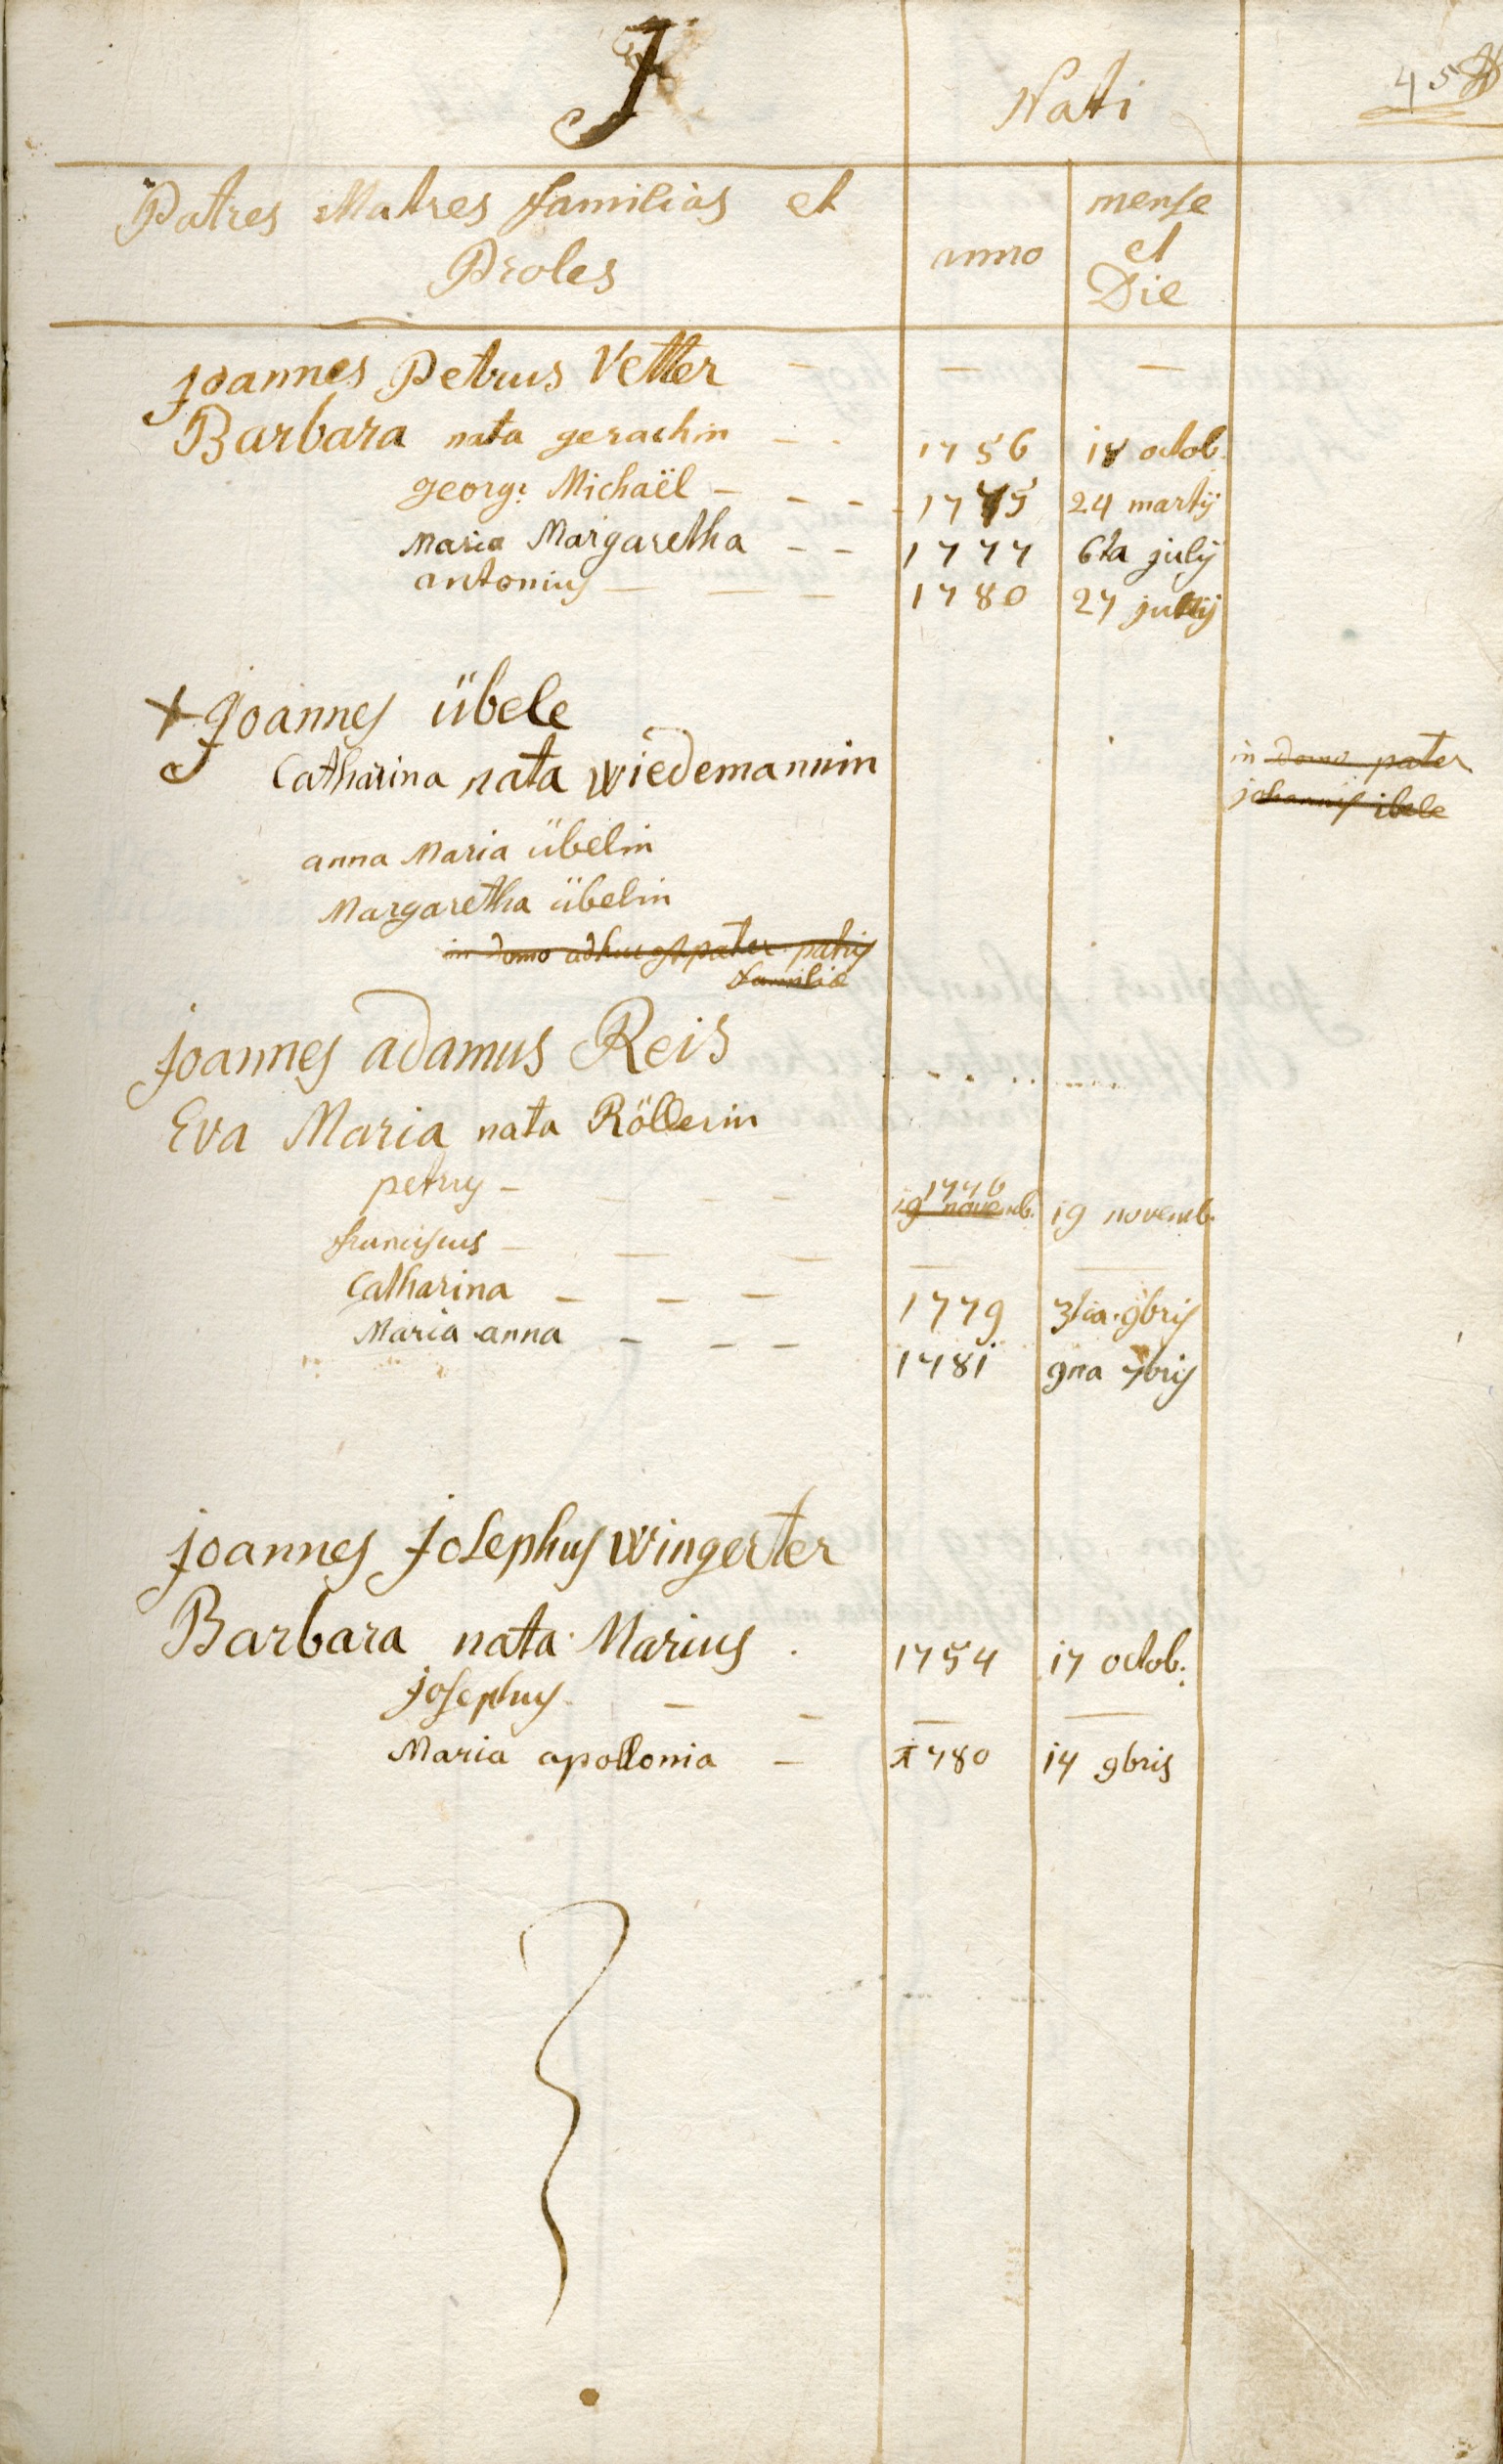 J
Nati
45
Patres Matres familias et
Proles
anno
mense
et
Die
Joannes Petrus Vetter - - -
Barbara nata gerachin - - 1756 octob.
georg: Michaël - - - 1775 24 martij
Maria Margaretha - - 1777 6ta julij
antonius - - - 1780 27 julij
+ Joannes übele
Catharina nata wiedemannin
in domo pater
johannis ibele
anna Maria übelin
Margaretha übelin
in domo adhuc est pater patris
familiae
Joannes adamus Reis
Eva Maria nata Röllerin
petrus - - - - 1776 19 novemb. 19 novemb.
franciscus - - - - -
Catharina - - - 1779 3tia 9bris
Maria anna - - - 1781 9na 7bris
Joannes Josephus wingerter
Barbara nata Marius . 1754 17 octob.
Josephus - - - -
Maria apollonia - 1780 14 9bris